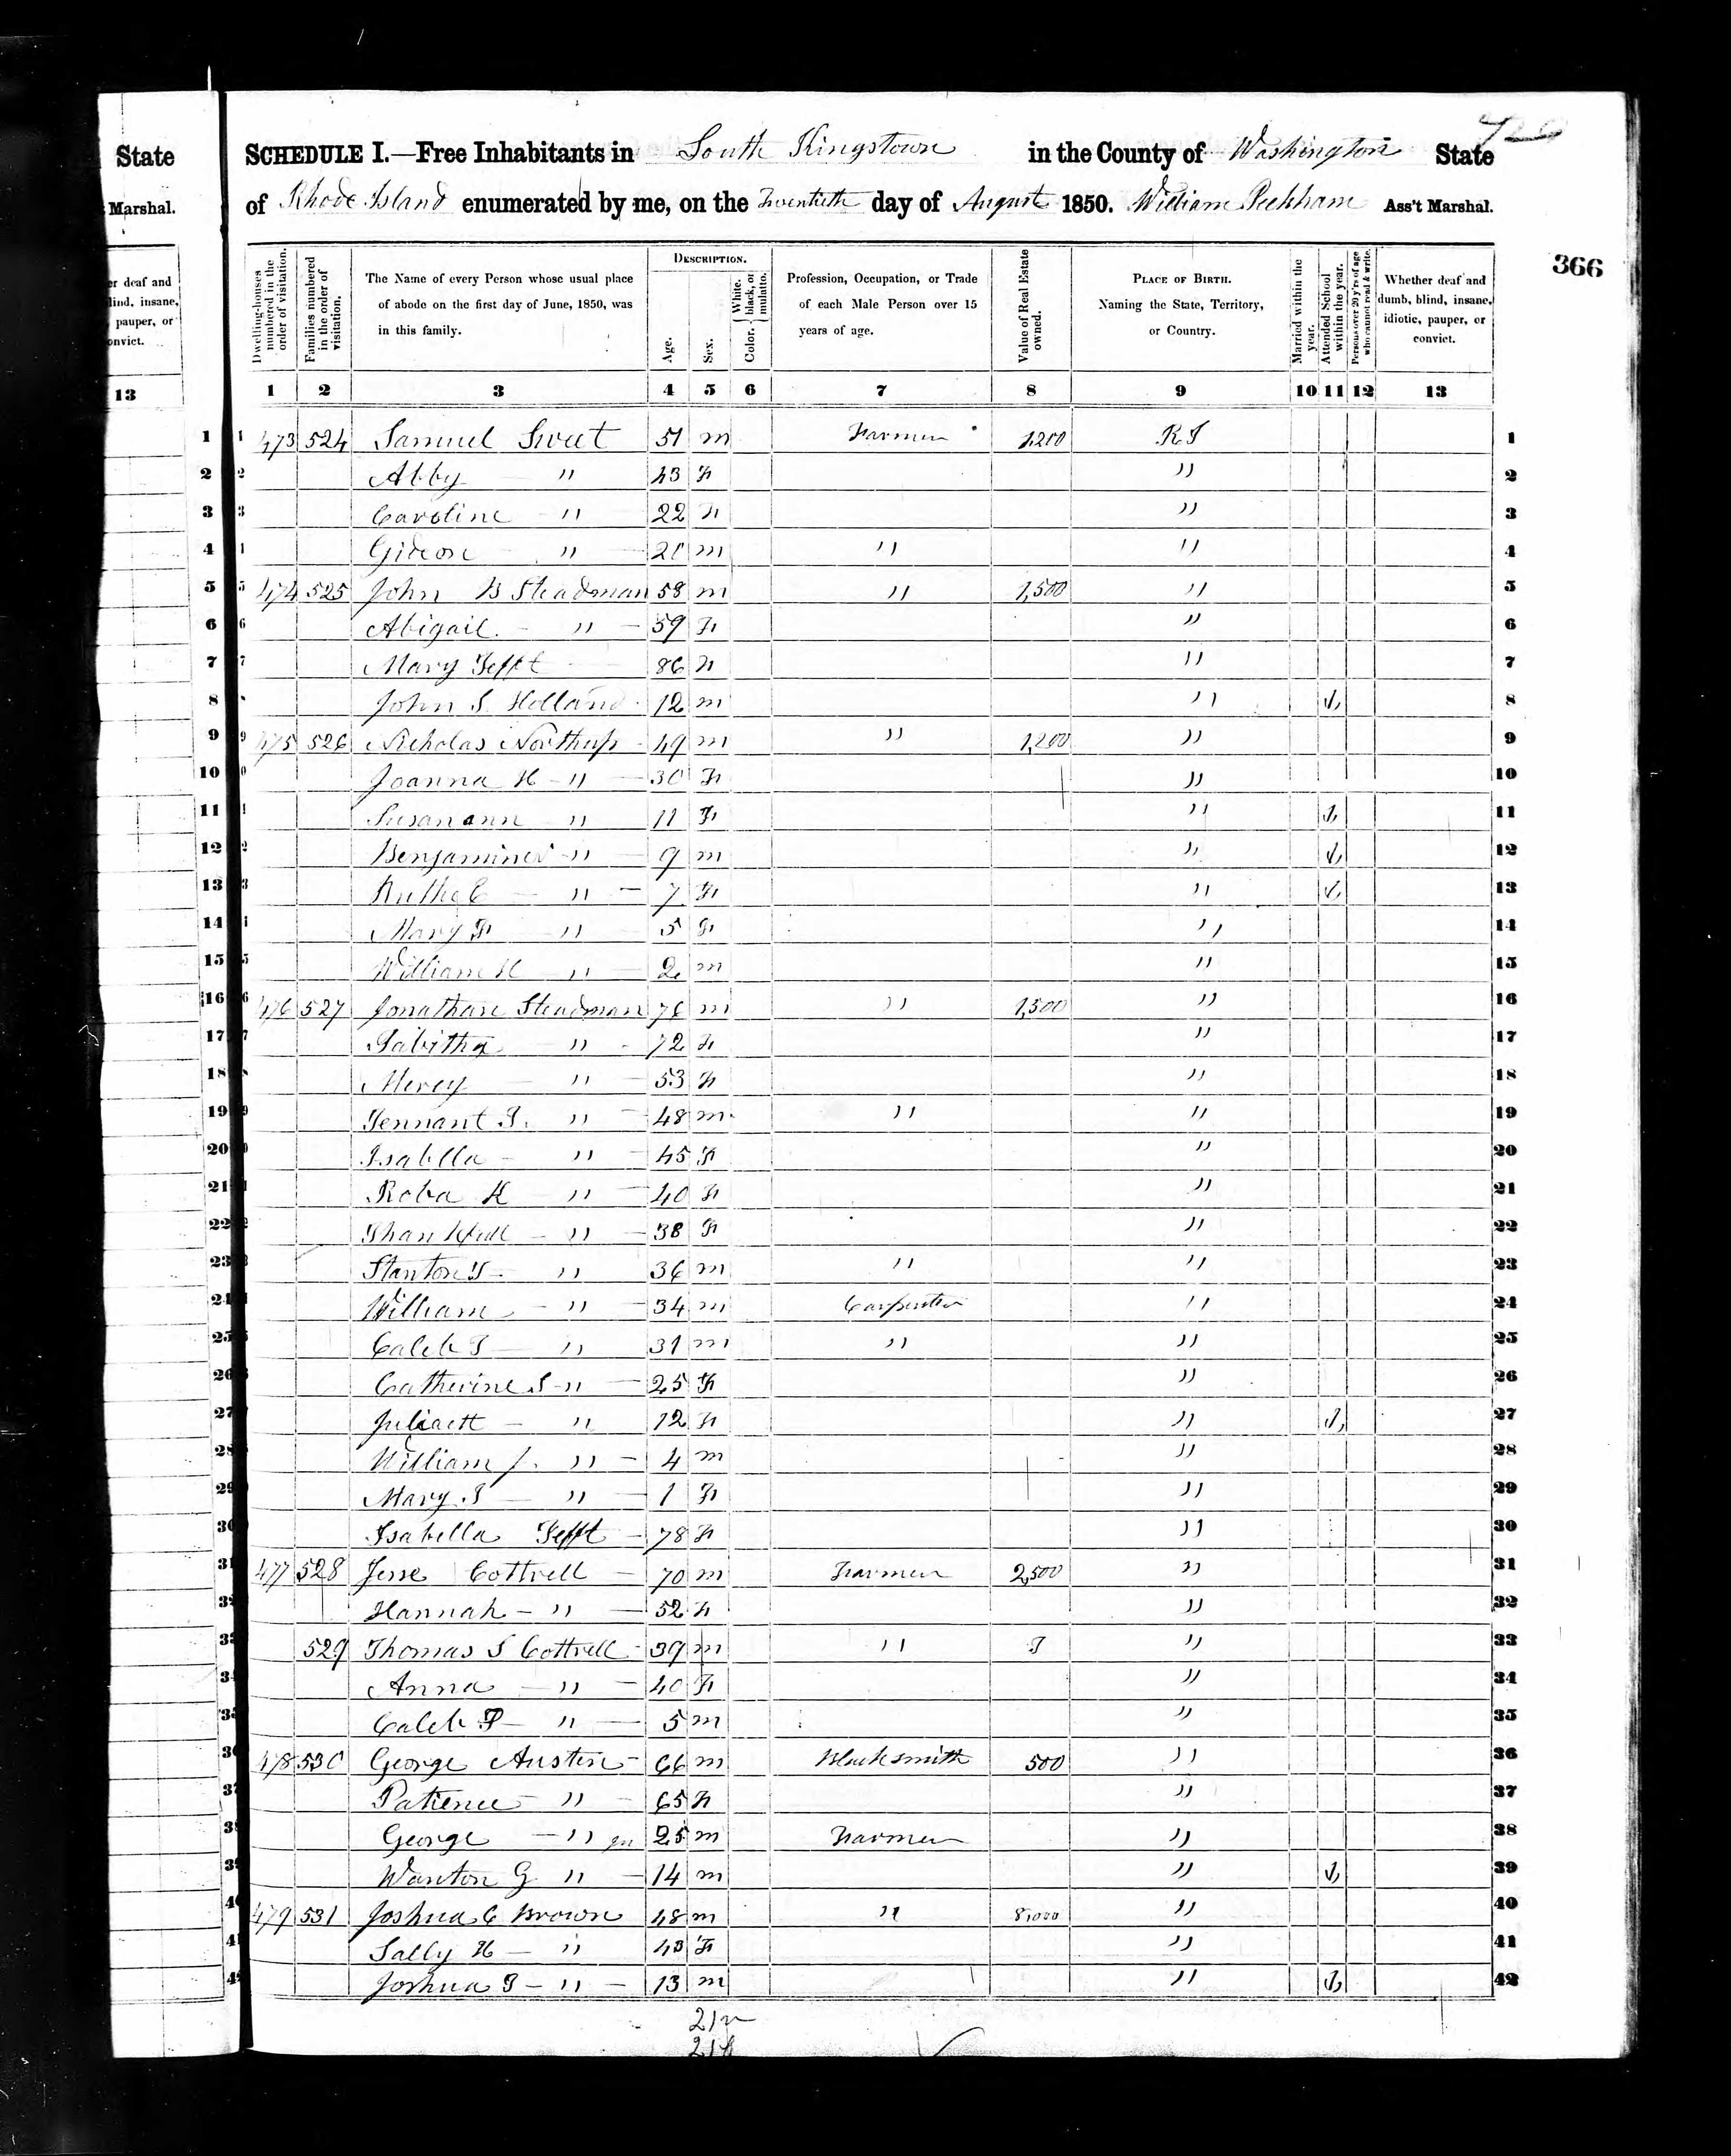 State
Marshal.
er deaf and
lind, insane,
pauper, or
onvict.
13
366
SCHEDULE I.—Free Inhabitants in South Kingstown in the County of Washington State
of Rhode Island enumerated by me, on the Twentieth day of August 1850. William Peckham Ass't Marshal.
Dwelling-houses numbered in the order of visitation.
Families numbered in the order of visitation.
The Name of every Person whose usual place of abode on the first day of June, 1850, was in this family.
DESCRIPTION.
Age.
Sex.
Color. { White, black, or mulatto.
Profession, Occupation, or Trade of each Male Person over 15 years of age.
Value of Real Estate owned.
PLACE OF BIRTH. Naming the State, Territory, or Country.
Married within the year.
Attended School within the year.
Persons over 20 y'rs of age who cannot read & write.
Whether deaf and dumb, blind, insane, idiotic, pauper, or convict.
1 2 3 4 5 6 7 8 9 10 11 12 13
1 473 524 Samuel Sweet 51 m Farmer 1,200 R I 1
2 Abby " 43 F " 2
3 Caroline " 22 F " 3
4 Gideon " 20 m " " 4
5 474 525 John B Steadman 58 m " 1,500 " 5
6 Abigail " 59 F " 6
7 Mary Tefft 86 F " 7
8 John S Holland 12 m " 8
9 475 526 Nicholas Northup 49 m " 1,200 " 9
10 Joanna H " 30 F " 10
11 Susan ann " 11 F " 11
12 Benjamin " 9 m " 12
13 Ruth C " 7 F " 13
14 Mary F " 5 F " 14
15 William H " 2 m " 15
16 476 527 Jonathan Steadman 76 m " 1,500 " 16
17 Tabitha " 72 F " 17
18 Mercy " 53 F " 18
19 Tennant T. " 48 m " " 19
20 Isabella " 45 F " 20
21 Roba K " 40 F " 21
22 Thankfull " 38 F " 22
23 Stanton T " 36 m " " 23
24 William " 34 m Carpenter " 24
25 Caleb T " 31 m " " 25
26 Catherine S " 25 F " 26
27 Juliaett " 12 F " 27
28 William J. " 4 m " 28
29 Mary S " 1 F " 29
30 Isabella Tefft 78 F " 30
31 477 528 Jesse Cottrell 70 m Farmer 2,500 " 31
32 Hannah " 52 F " 32
33 529 Thomas S Cottrell 39 m " " 33
34 Anna " 40 F " 34
35 Caleb P " 5 m " 35
36 478 530 George Austin 66 m Blacksmith 500 " 36
37 Patience " 65 F " 37
38 George " jr 25 m Farmer " 38
39 Wanton G " 14 m " 39
40 479 531 Joshua C Brown 48 m " 8,000 " 40
41 Sally H " 43 F " 41
42 Joshua T " 13 m " 42